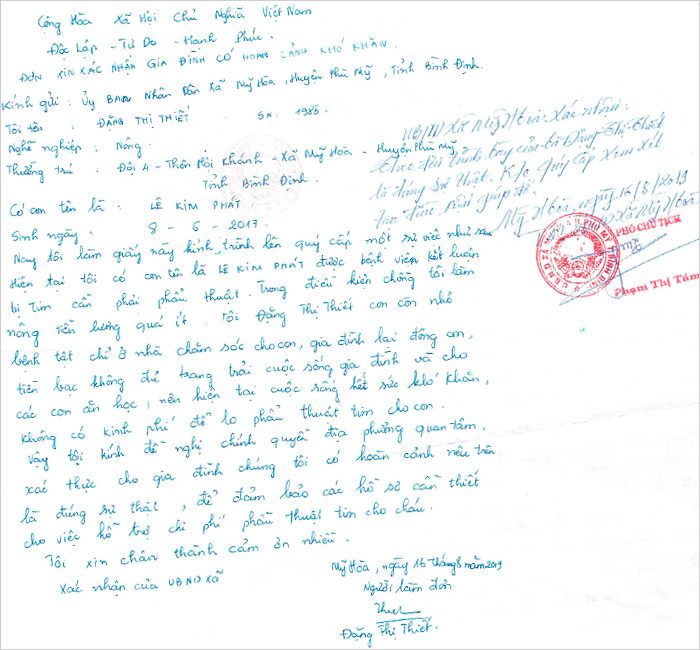 Cộng Hòa Xã Hội Chủ Nghĩa Việt Nam
Độc Lập - Tự Do - Hạnh Phúc.
ĐƠN XIN XÁC NHẬN GIA ĐÌNH CÓ HOÀN CẢNH KHÓ KHĂN.
Kính gửi : Ủy Ban Nhân Dân Xã Mỹ Hòa, Huyện Phù Mỹ, Tỉnh Bình Định.
Tôi tên : ĐẶNG THỊ THIẾT . SN: 1986
Nghề nghiệp : Nông.
Thường trú : Đội 4 - Thôn Hội Khánh - Xã Mỹ Hòa - Huyện Phù Mỹ
Tỉnh Bình Định.
Có con tên là : LÊ KIM PHÁT
Sinh ngày : 8 - 6 - 2017.
Nay tôi làm giấy này kính trình lên quý cấp một sự việc như sau
Hiện tại tôi có con tên là LÊ KIM PHÁT được bệnh viện kết luận
bị tim cần phải phẫu thuật. Trong điều kiện chồng tôi làm
nông tiền lương quá ít. Tôi Đặng Thị Thiết con còn nhỏ
bệnh tật chỉ ở nhà chăm sóc cho con, gia đình lại đông con,
tiền bạc không đủ trang trải cuộc sống gia đình và cho
các con ăn học, nên hiện tại cuộc sống hết sức khó khăn,
không có kinh phí để lo phẫu thuật tim cho con.
Vậy tôi kính đề nghị chính quyền địa phương quan tâm.
xác thực cho gia đình chúng tôi có hoàn cảnh nêu trên
là đúng sự thật, để đảm bảo các hồ sơ cần thiết
cho việc hỗ trợ chi phí phẫu thuật tim cho cháu.
Tôi xin chân thành cảm ơn nhiều.
Xác nhận của UBND xã
Mỹ Hòa, ngày 16 tháng 8 năm 2019
Người làm đơn
Đặng Thị Thiết.
UBND xã Mỹ Hòa xác nhận:
Theo đơn trình bày của bà Đặng Thị Thiết
là đúng sự thật. K/g Quý cấp xem xét
giúp đỡ.
Mỹ Hòa, ngày 16/8/2019
xã Mỹ Hòa
PHÓ CHỦ TỊCH
Phạm Thị Tám